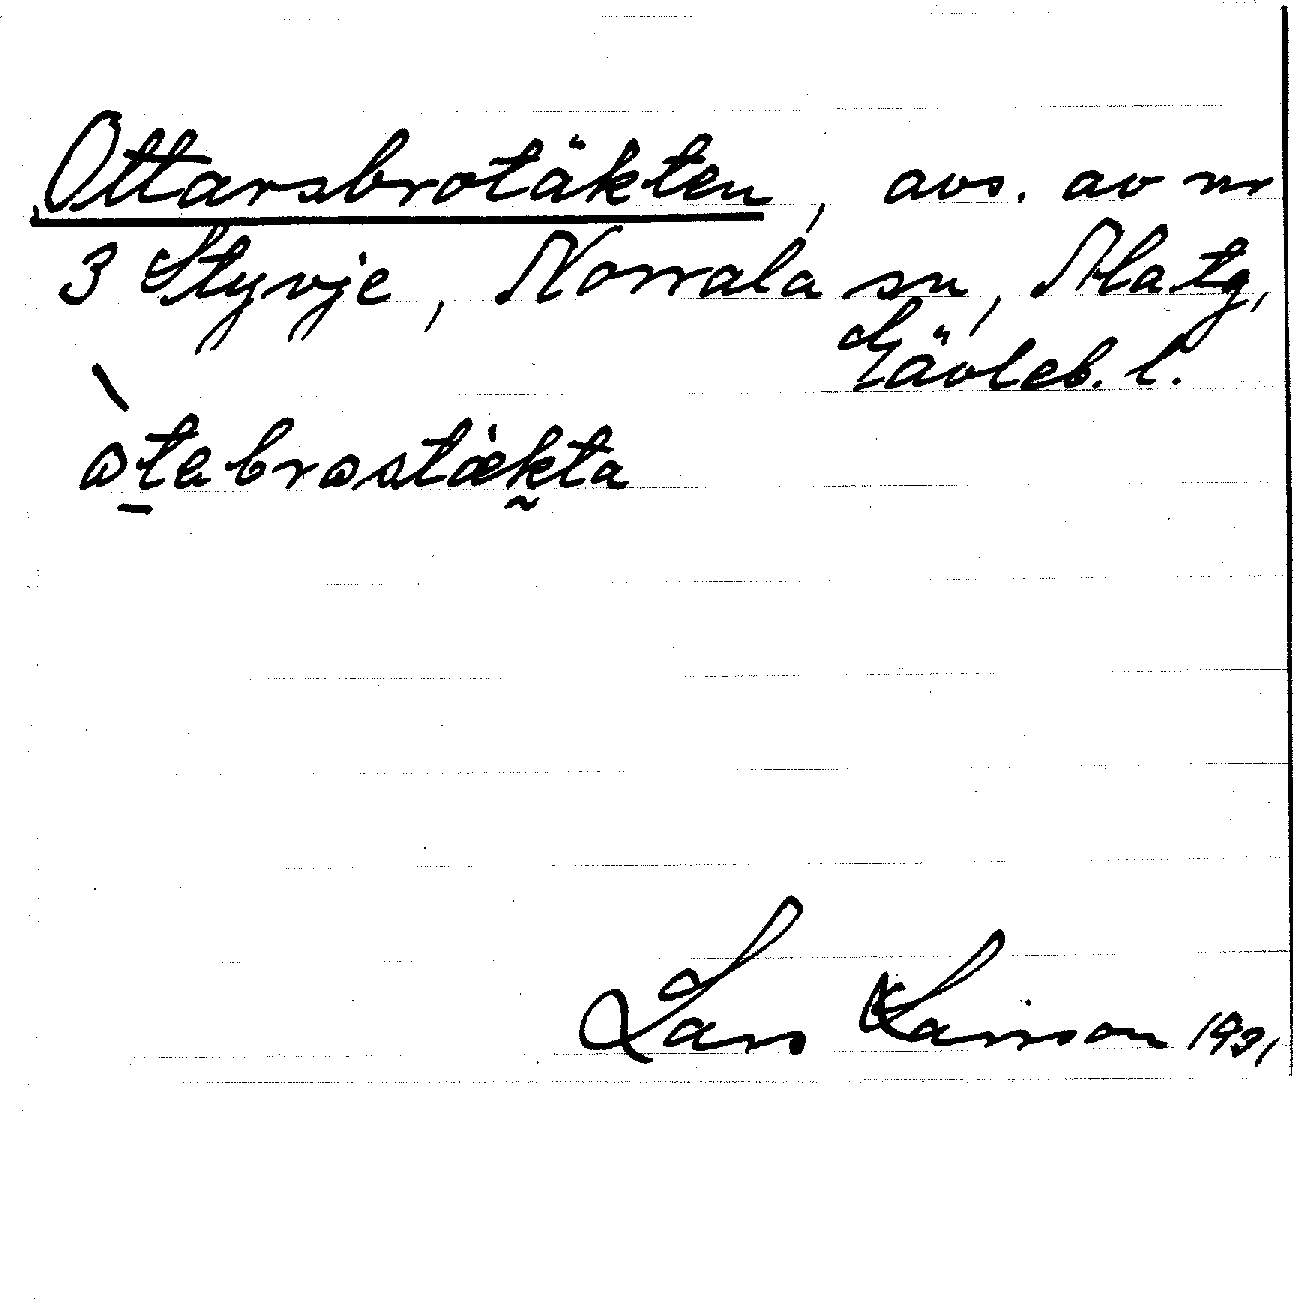 Ottarsbrotäkten, avs. av nr
3 Styvje, Norrala sn, Ala tg,
Gävleb. l.
ɷ̀t̠abrɷstæ̀k̰ta
Lars Larsson 1931